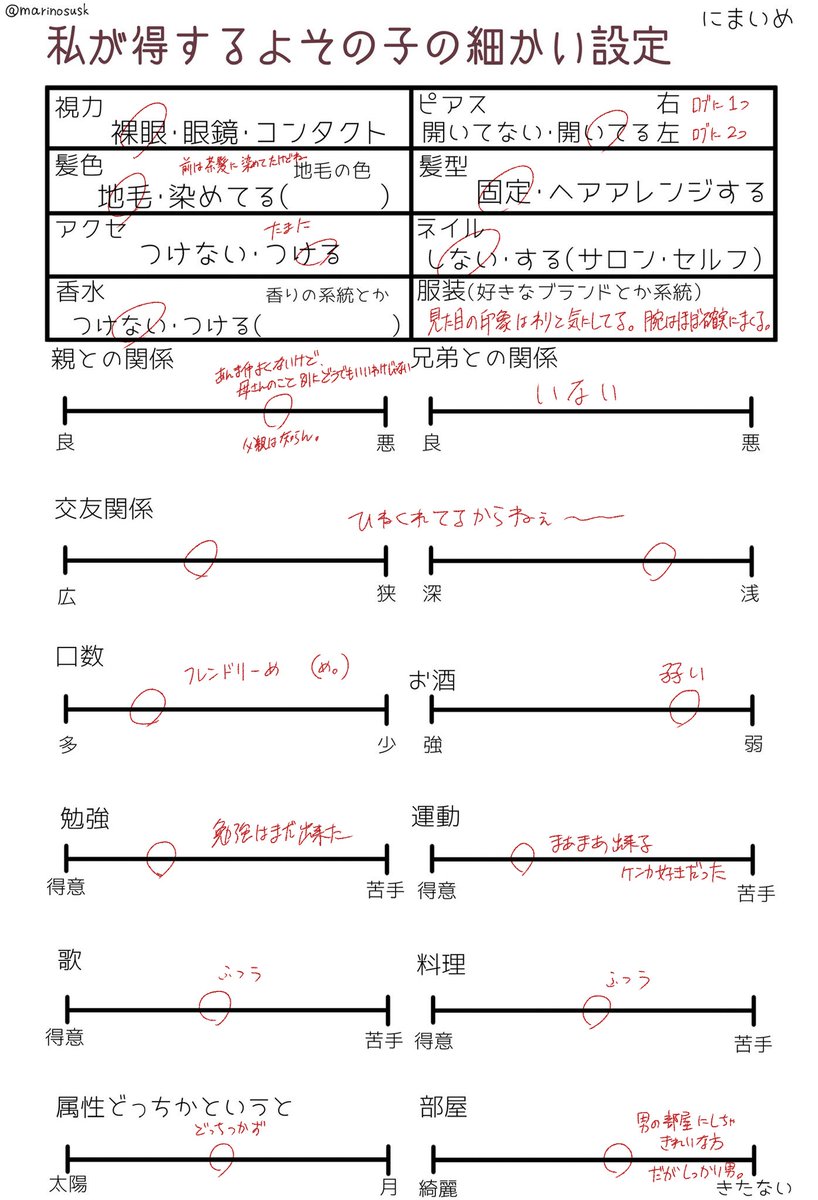 @marinosusk
にまいめ
私が得するよその子の細かい設定
視力
裸眼・眼鏡・コンタクト
ピアス
右 ロブに1つ
開いてない・開いてる 左 ロブに2つ
髪色
前は茶髪に染めてたけどね
地毛の色
地毛・染めてる( )
髪型
固定・ヘアアレンジする
アクセ
たまに
つけない・つける
ネイル
しない・する(サロン・セルフ)
香水
香りの系統とか
つけない・つける( )
服装(好きなブランドとか系統)
見た目の印象はわりと気にしてる。腕はほぼ確実にまくる。
親との関係
あんま仲よくないけど、
母さんのこと別にどうでもいいわけじゃない
父親は知らん。
良
悪
兄弟との関係
いない
良
悪
交友関係
ひねくれてるからねぇ〜
広
狭
深
浅
口数
フレンドリーめ (め。)
多
少
お酒
弱い
強
弱
勉強
勉強はまだ出来た
得意
苦手
運動
まあまあ出来る
ケンカ好きだった
得意
苦手
歌
ふつう
得意
苦手
料理
ふつう
得意
苦手
属性どっちかというと
どっちつかず
太陽
月
部屋
男の部屋にしちゃ
きれいな方
だがしっかり男。
綺麗
きたない